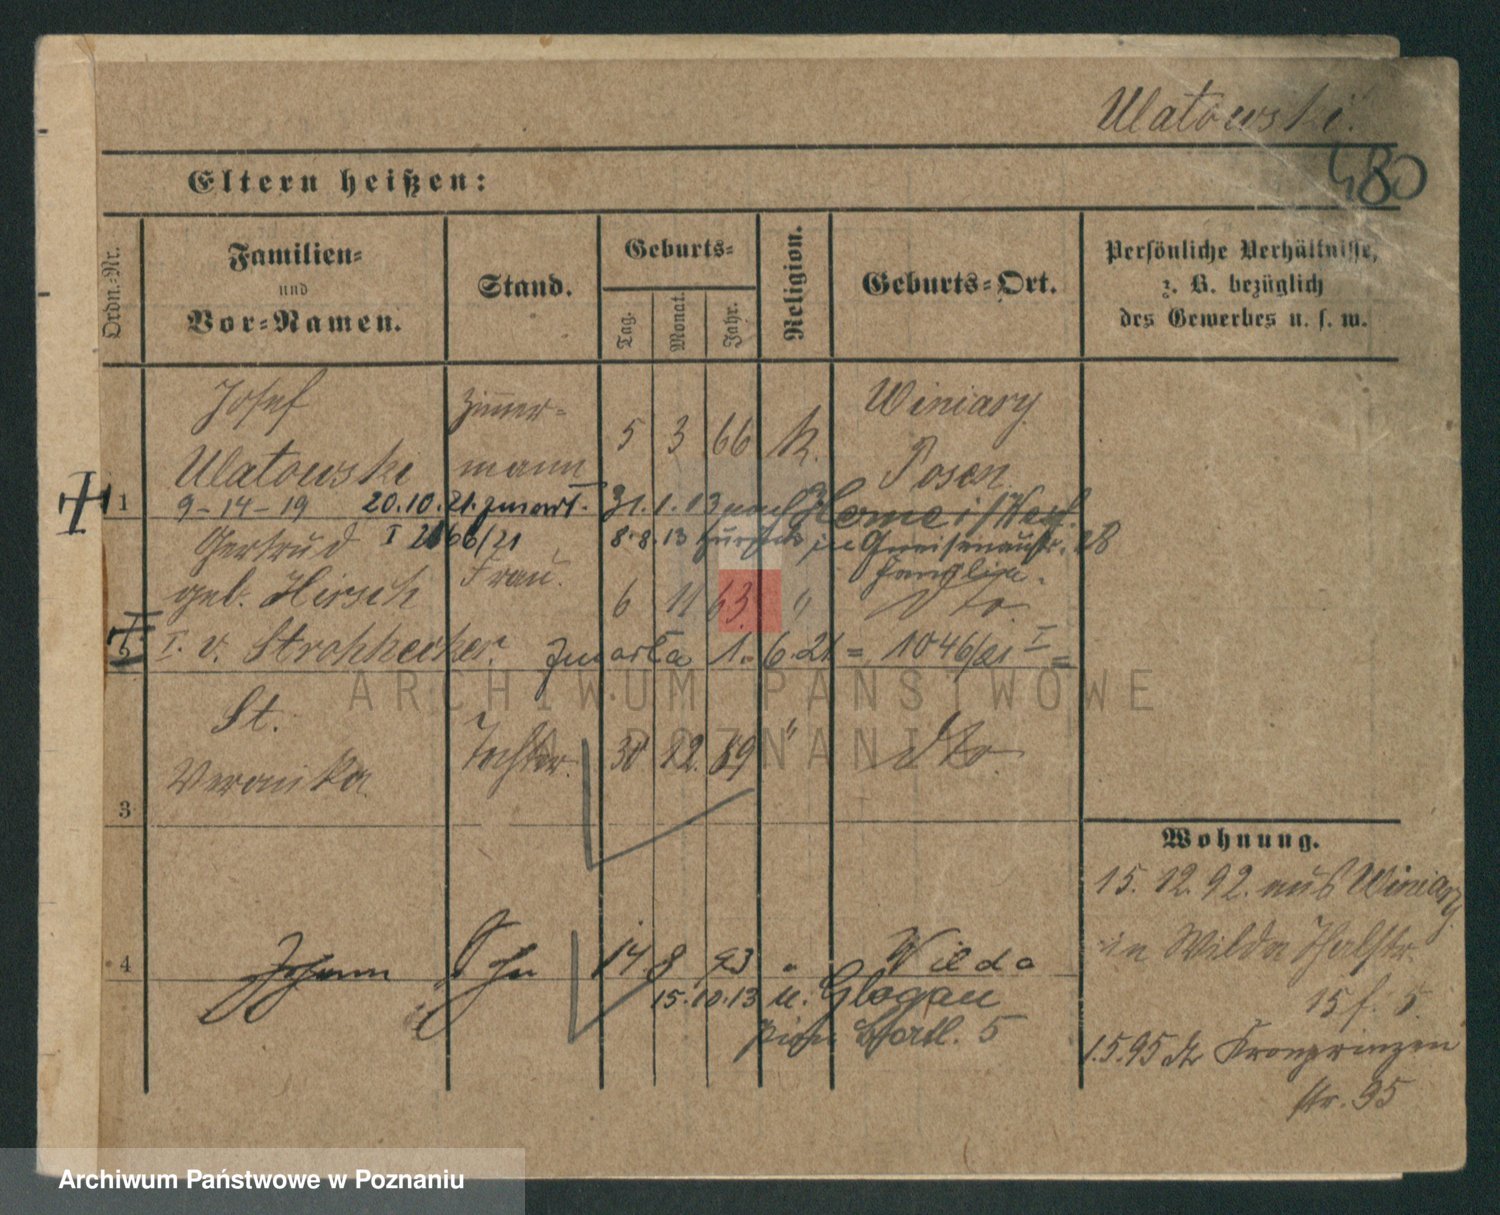 Ulatowski.
480
Eltern heißen:
Ordn.-Nr.
Familien-
und
Vor-Namen.
Stand.
Geburts-
Tag.
Monat.
Jahr.
Religion.
Geburts-Ort.
Persönliche Verhältnisse,
z. B. bezüglich
des Gewerbes u. s. w.
1
Josef
Ulatowski
Zimmer-
mann
5 3 66 k.
Winiary
Posen
9-14-19 20.10.21. zmarł. 31.1.13 nach
I 2166/21 8.8.13 in Gneisenaustr. 28
Gertrud
geb. Hirsch
Frau.
6 11 63. "
dto.
I. v. Strohhecker. zmarła 1. 6. 21 = 1046/21 I =
St.
Veronika
Tochter.
30 12. 89 "
dto.
3
4
Johann
Sohn
14 8 93 "
Wilda
15.10.13 n. Glogau
Pion. Batl. 5
Wohnung.
15. 12. 92. aus Winiary
in Wilda Thalstr.
15 f. 5.
1.5.95 Kronprinzen
str. 95
ARCHIWUM PAŃSTWOWE
W POZNANIU
Archiwum Państwowe w Poznaniu